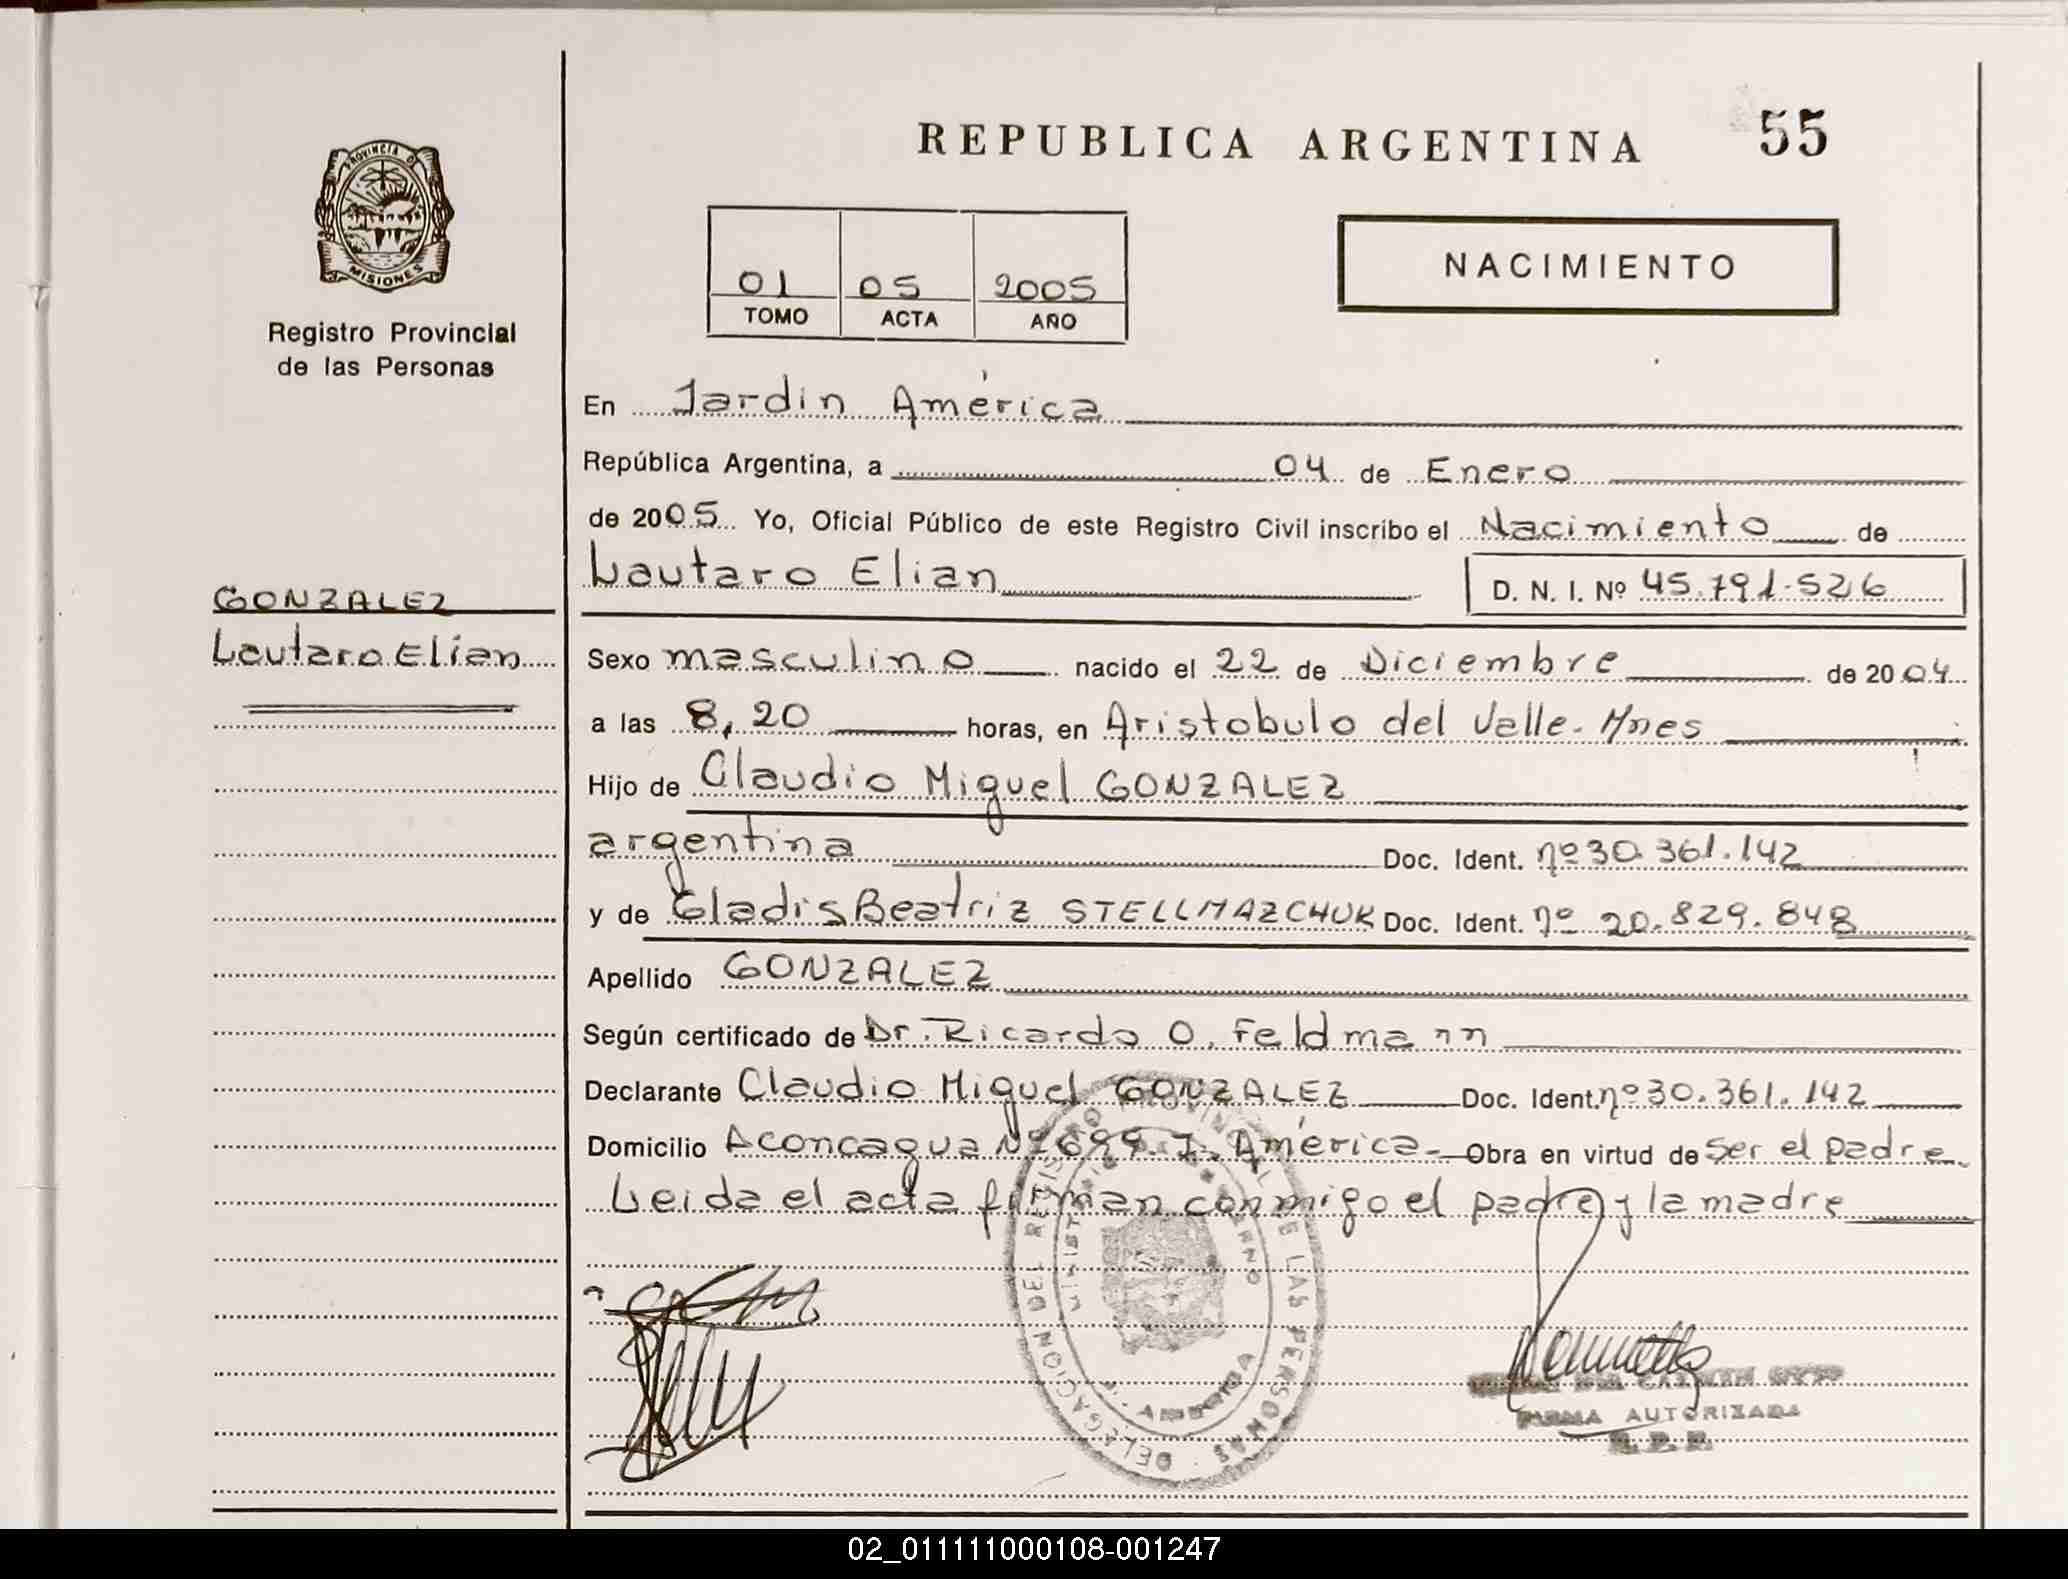 REPUBLICA ARGENTINA 55
PROVINCIA D
MISIONES
Registro Provincial
de las Personas
01 05 2005
TOMO ACTA AÑO
NACIMIENTO
En Jardin América
República Argentina, a 04 de Enero
de 2005 Yo, Oficial Público de este Registro Civil inscribo el Nacimiento de
Lautaro Elian D. N. I. Nº 45.791.526
GONZALEZ
Lautaro Elian
Sexo masculino nacido el 22 de Diciembre de 2004
a las 8,20 horas, en Aristobulo del Valle - Mnes
Hijo de Claudio Miguel GONZALEZ
argentina Doc. Ident. nº 30.361.142
y de Gladis Beatriz STELLMAZCHUK Doc. Ident. nº 20.829.848
Apellido GONZALEZ
Según certificado de Dr. Ricardo O. Feldmann
Declarante Claudio Miguel GONZALEZ Doc. Ident. nº 30.361.142
Domicilio Aconcagua Nº 699. J. América - Obra en virtud de ser el padre.
Leida el acta firman conmigo el padre y la madre
DELEGACION DEL REGISTRO PROVINCIAL DE LAS PERSONAS
FIRMA AUTORIZADA
R. P. P.
02_011111000108-001247